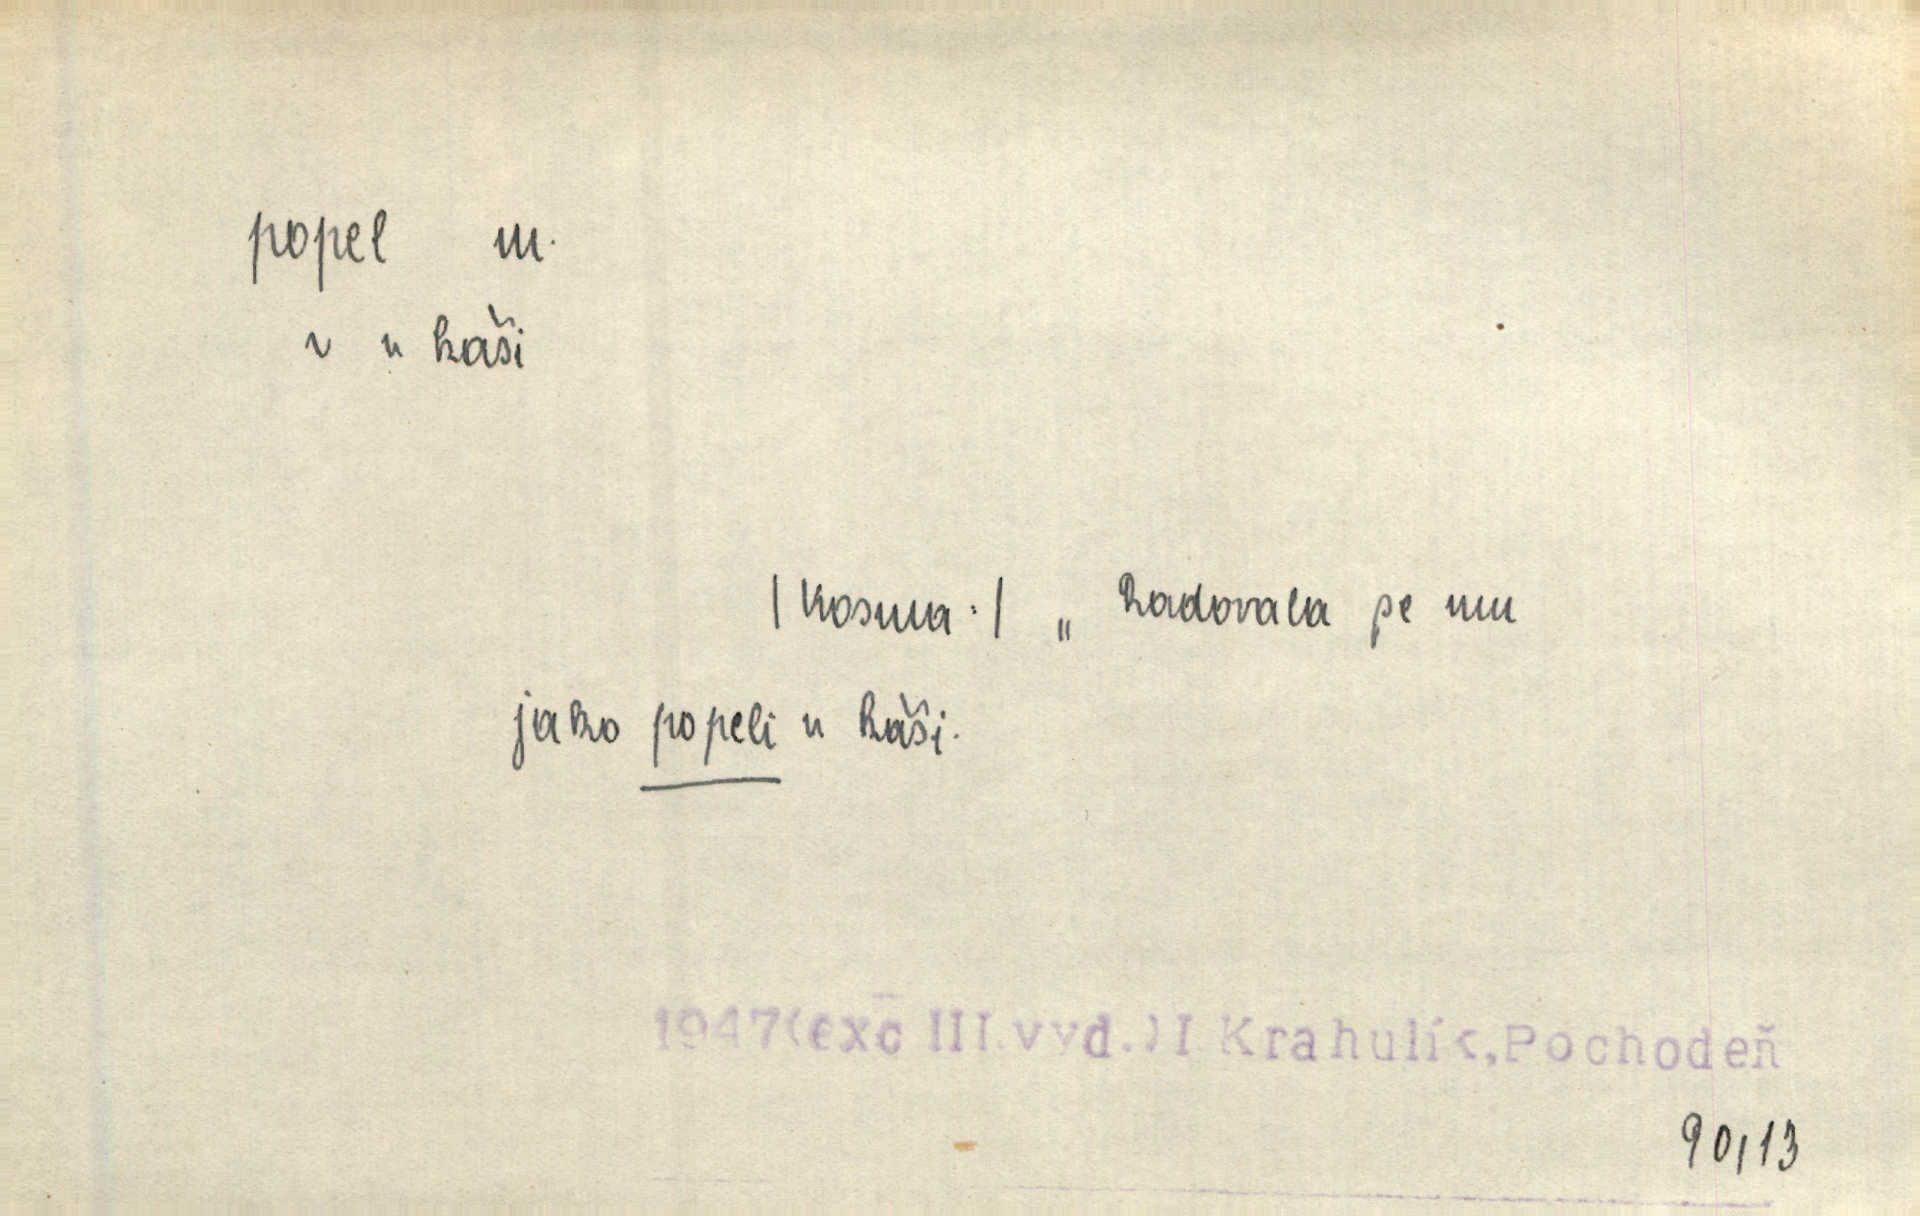 popel m.
~ v kaši
/Kosma:/ „Radovala se mu
jako popeli v kaši.
1947(exc III.vyd.)I Krahulík,Pochodeň
90,13